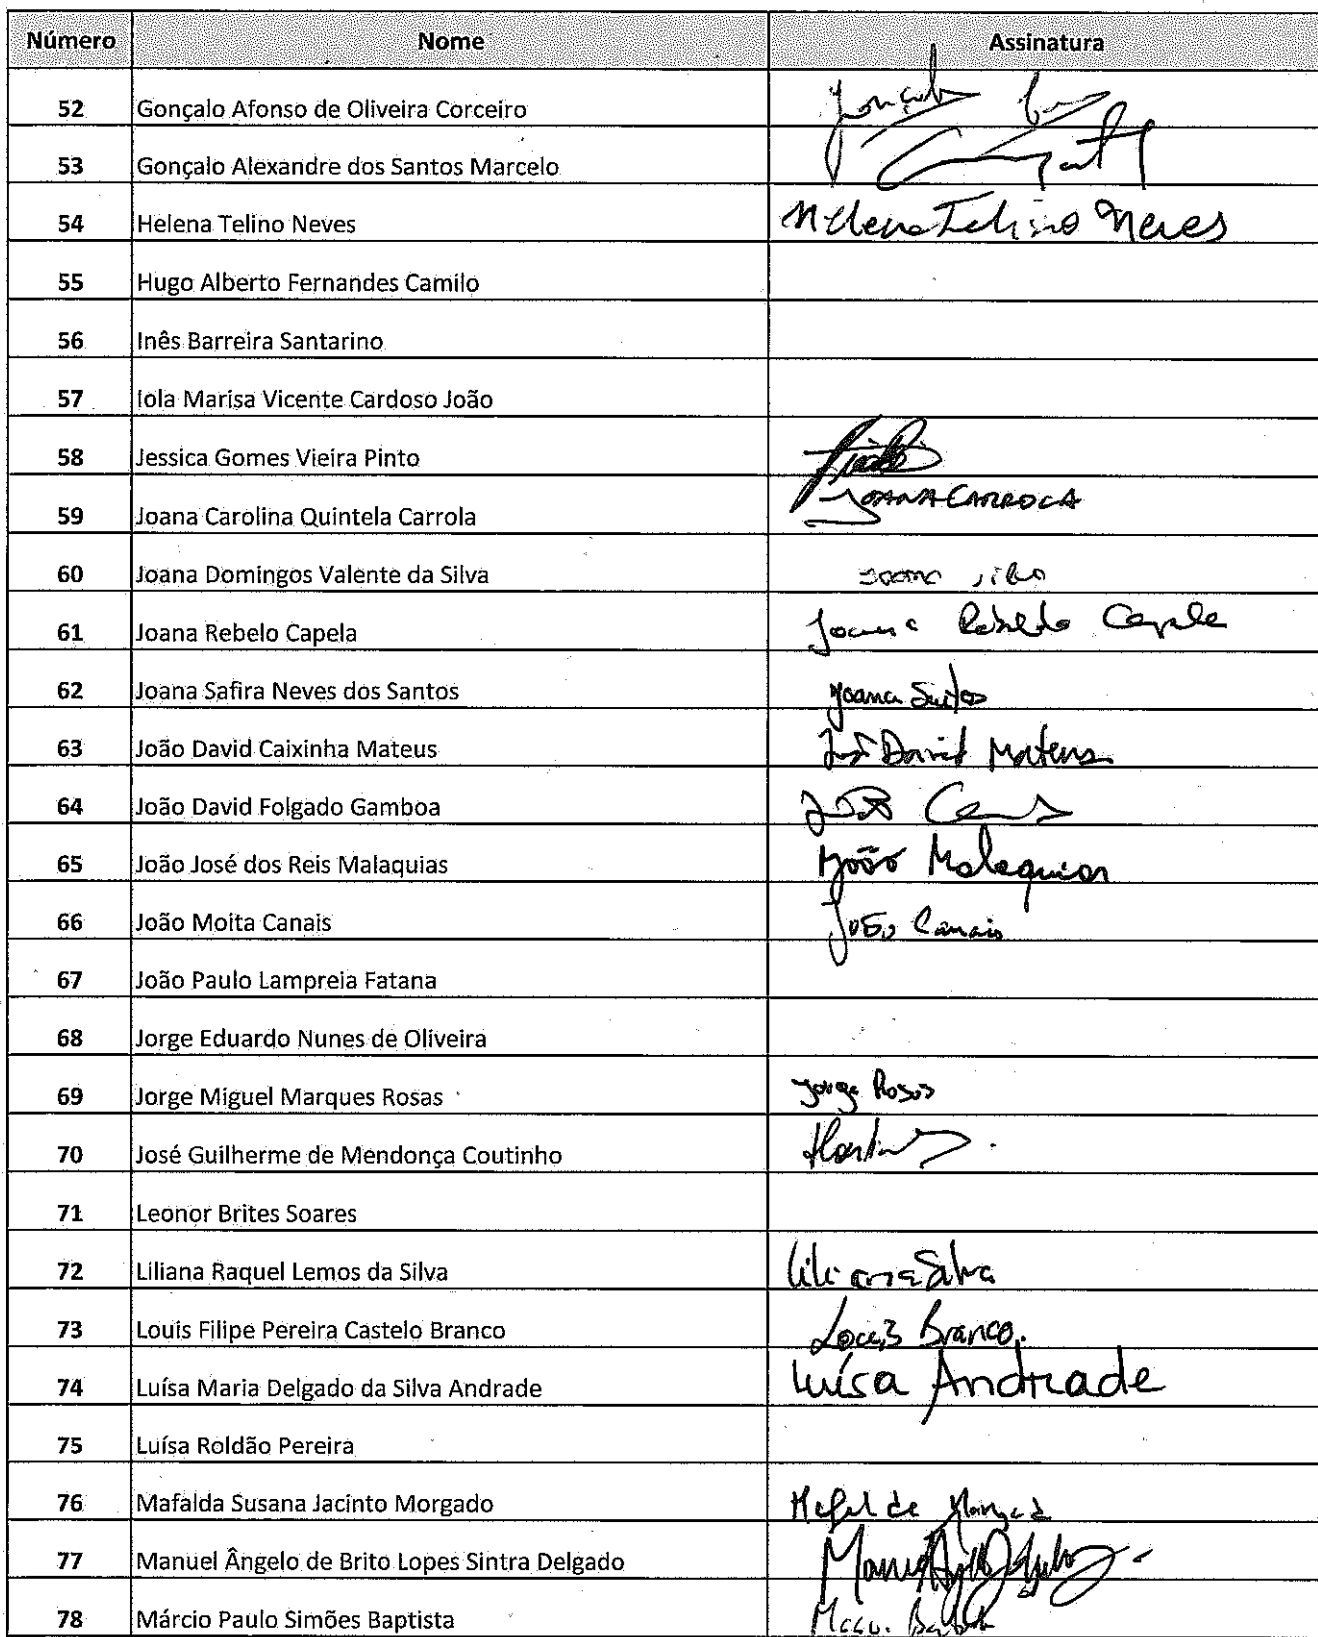 Número Nome Assinatura
52 Gonçalo Afonso de Oliveira Corceiro Gonçalo
53 Gonçalo Alexandre dos Santos Marcelo
54 Helena Telino Neves Helena Telino Neves
55 Hugo Alberto Fernandes Camilo
56 Inês Barreira Santarino
57 Iola Marisa Vicente Cardoso João
58 Jessica Gomes Vieira Pinto
59 Joana Carolina Quintela Carrola JOANA CARROLA
60 Joana Domingos Valente da Silva Joana Silva
61 Joana Rebelo Capela Joana Rebelo Capela
62 Joana Safira Neves dos Santos Joana Santos
63 João David Caixinha Mateus João David Mateus
64 João David Folgado Gamboa João
65 João José dos Reis Malaquias João Malaquias
66 João Moita Canais João Canais
67 João Paulo Lampreia Fatana
68 Jorge Eduardo Nunes de Oliveira
69 Jorge Miguel Marques Rosas Jorge Rosas
70 José Guilherme de Mendonça Coutinho
71 Leonor Brites Soares
72 Liliana Raquel Lemos da Silva Liliana Silva
73 Louis Filipe Pereira Castelo Branco Louis Branco.
74 Luísa Maria Delgado da Silva Andrade Luísa Andrade
75 Luísa Roldão Pereira
76 Mafalda Susana Jacinto Morgado Mafalda Morgado
77 Manuel Ângelo de Brito Lopes Sintra Delgado Manuel Ângelo Delgado
78 Márcio Paulo Simões Baptista